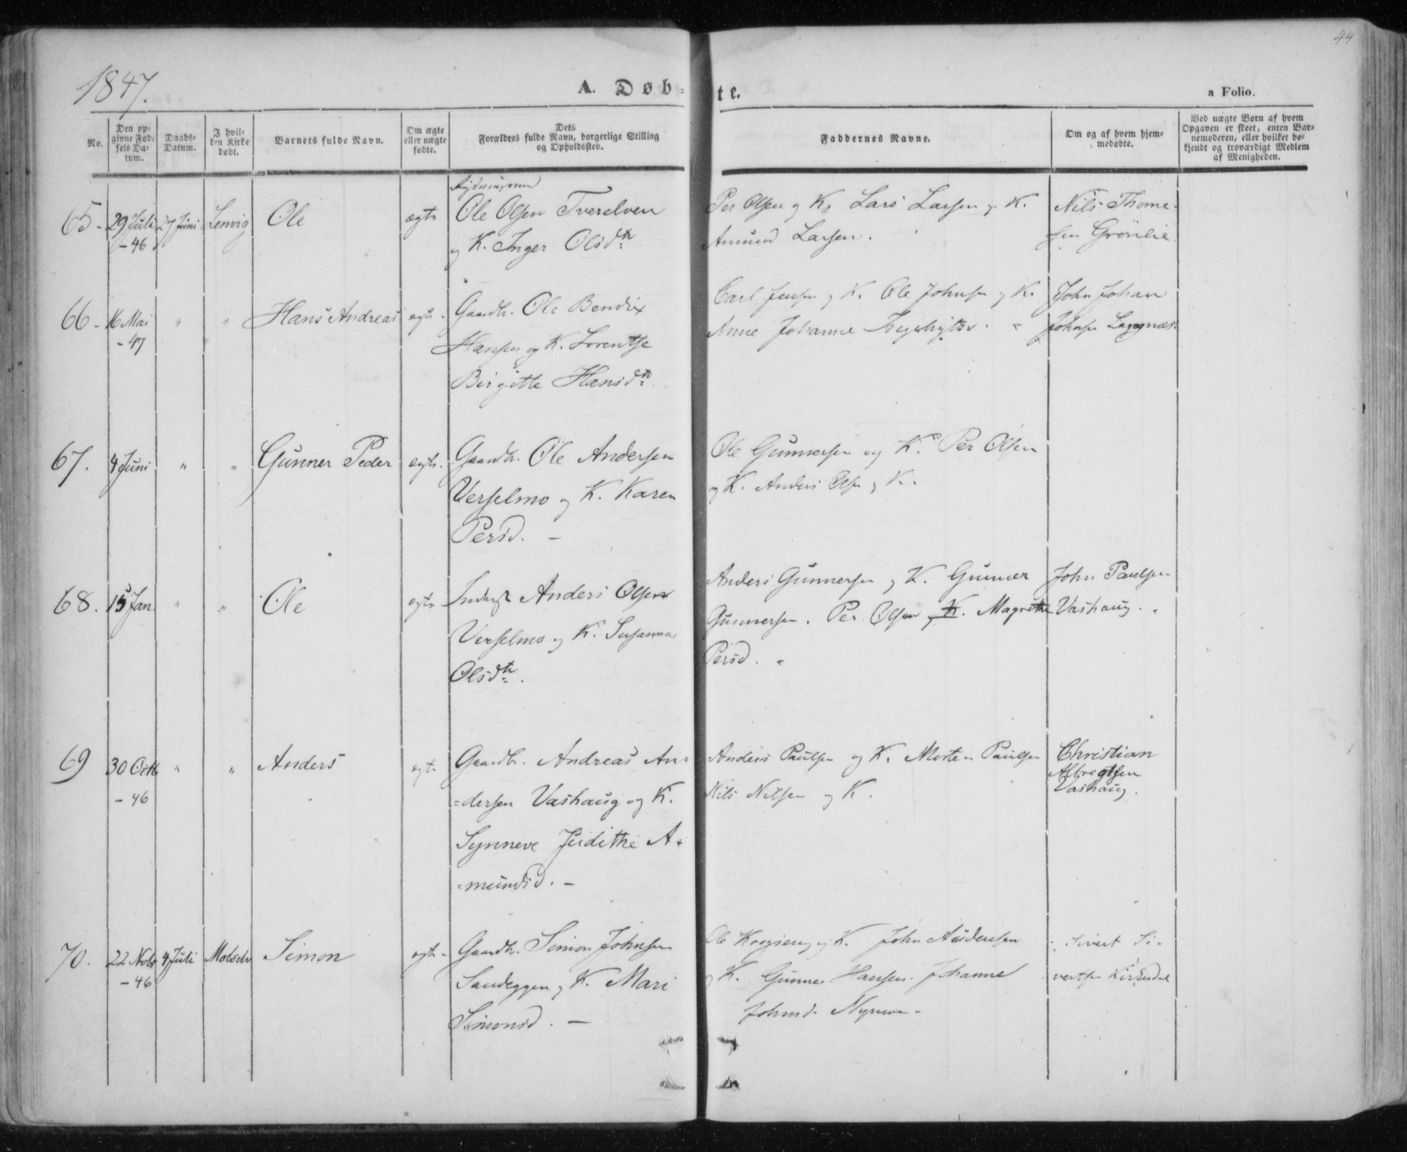 44
1847.
A. Døb-te.
a Folio.
No.
Den op-
givne Fød-
sels Da-
tum.
Daabs-
Datum.
I hvil-
ken Kirke
døbt.
Barnets fulde Navn.
Om ægte
eller uægte
fødte.
Dets
Forældres fulde Navn, borgerlige Stilling
og Opholdssted.
Faddernes Navne.
Om og af hvem hjem-
medøbte.
Ved uægte Børn af hvem
Opgaven er skeet, enten Bar-
nemoderen, eller hvilket be-
kjendt og troværdigt Medlem
af Menigheden.
Rydningsm
65 - 29 Juli 27 Juni Lenvig Ole ægte Ole Olsen Tverelven Per Olsen og K. Lars Larsen og K. Nils Thome-
- 46 og K. Inger Olsdtr Amund Larsen. sen Grönlie
66 - 16 Mai " " Hans Andreas ægte - Gaardb. Ole Bendix Carl Jensen og K. Ole Johnsen og K. John Johan
- 47 Hansen og K. Lorentse Anne Johanne Johnsen Langnæs
Birgitte Hansdtr
67. 4 Juni " " Gunner Peder ægte - Gaardb. Ole Andersen Ole Gunnersen og K. Per Olsen
Verselmo og K. Karen og K. Anders Olsen og K.
Persd. -
68. 15 Jan. " " Ole ægte Inderst Anders Olsen Anders Gunnersen og K. Gunner John Paulsen
Verselmo og K. Susanna Gunnersen. Per Olsen og K. Magrethe Vashaug.
Olsdtr. Persd.
69 30 Octb " " Anders ægte Gaardb. Andreas An- Anders Paulsen og K. Morten Paulsen Christian
- 46 =dersen Vashaug og K. Nils Nilsen og K. Albregtsen
Synneve Judithe A- Vashaug.
=mundsd. -
70. 22 Novb 4 Juli Maalselv Simon ægte - Gaardb. Simon Johnsen Ole og K. John Andersen Sivert Si-
- 46 Sandeggen og K. Mari og K. Gunner Hansen. Johanne vertsen
Simonsd. - Johnsd. Nymoen -